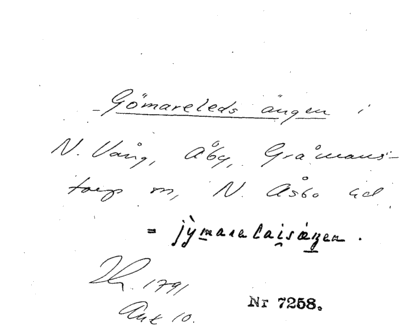 Gömareleds ängen i
N. Vång, Åby, Gråmans-
torp sn, N. Åsbo hd
= jỳmarelaisæŋen.
Lh. 1791
Ant 10.
Nr 7258.